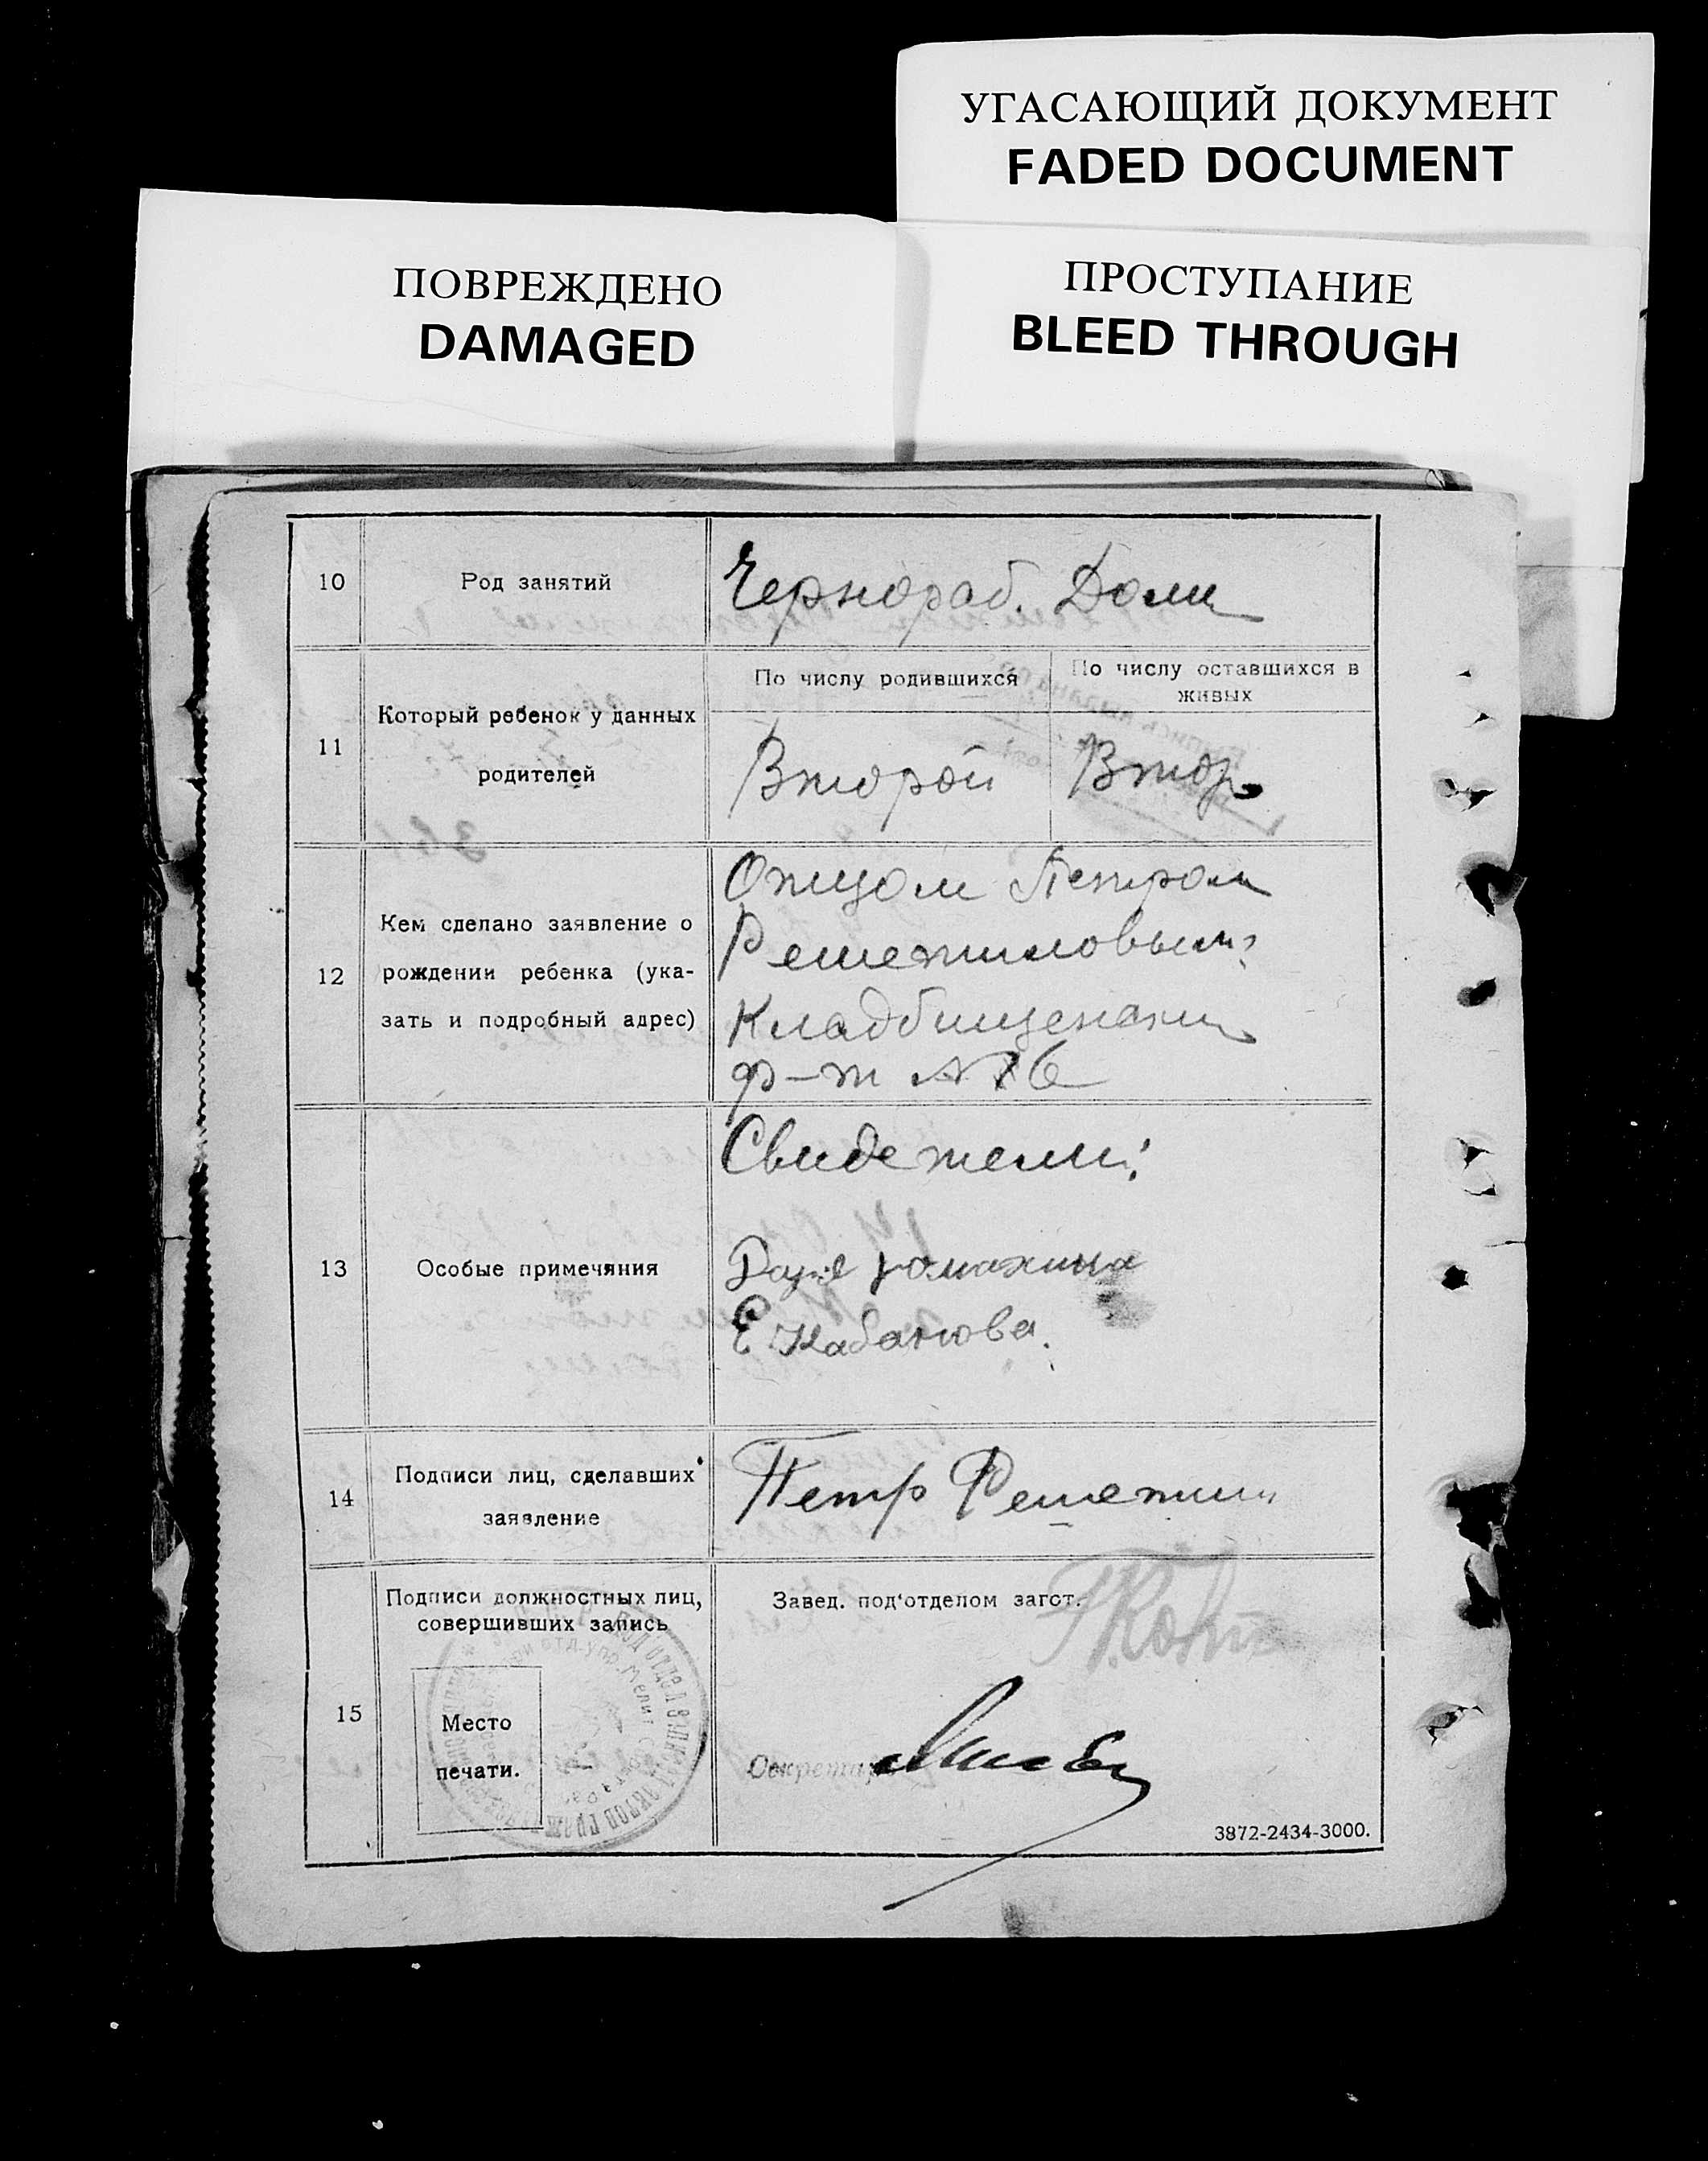 УГАСАЮЩИЙ ДОКУМЕНТ
FADED DOCUMENT
ПОВРЕЖДЕНО
DAMAGED
ПРОСТУПАНИЕ
BLEED THROUGH
10
Род занятий
Чернораб. Дом
11
Который ребенок у данных
родителей
По числу родившихся
По числу оставшихся в
живых
Второй
Втор.
12
Кем сделано заявление о
рождении ребенка (ука-
зать и подробный адрес)
Отцом Петром
Решетиловым
Кладбищенски
ф-т № 16
13
Особые примечания
Свидетели:
Е Кабанова.
14
Подписи лиц, сделавших
заявление
Петр Решетил
15
Подписи должностных лиц,
совершивших запись
Место
печати.
Завед. под‘отделом загст.
Секретарь
3872-2434-3000.